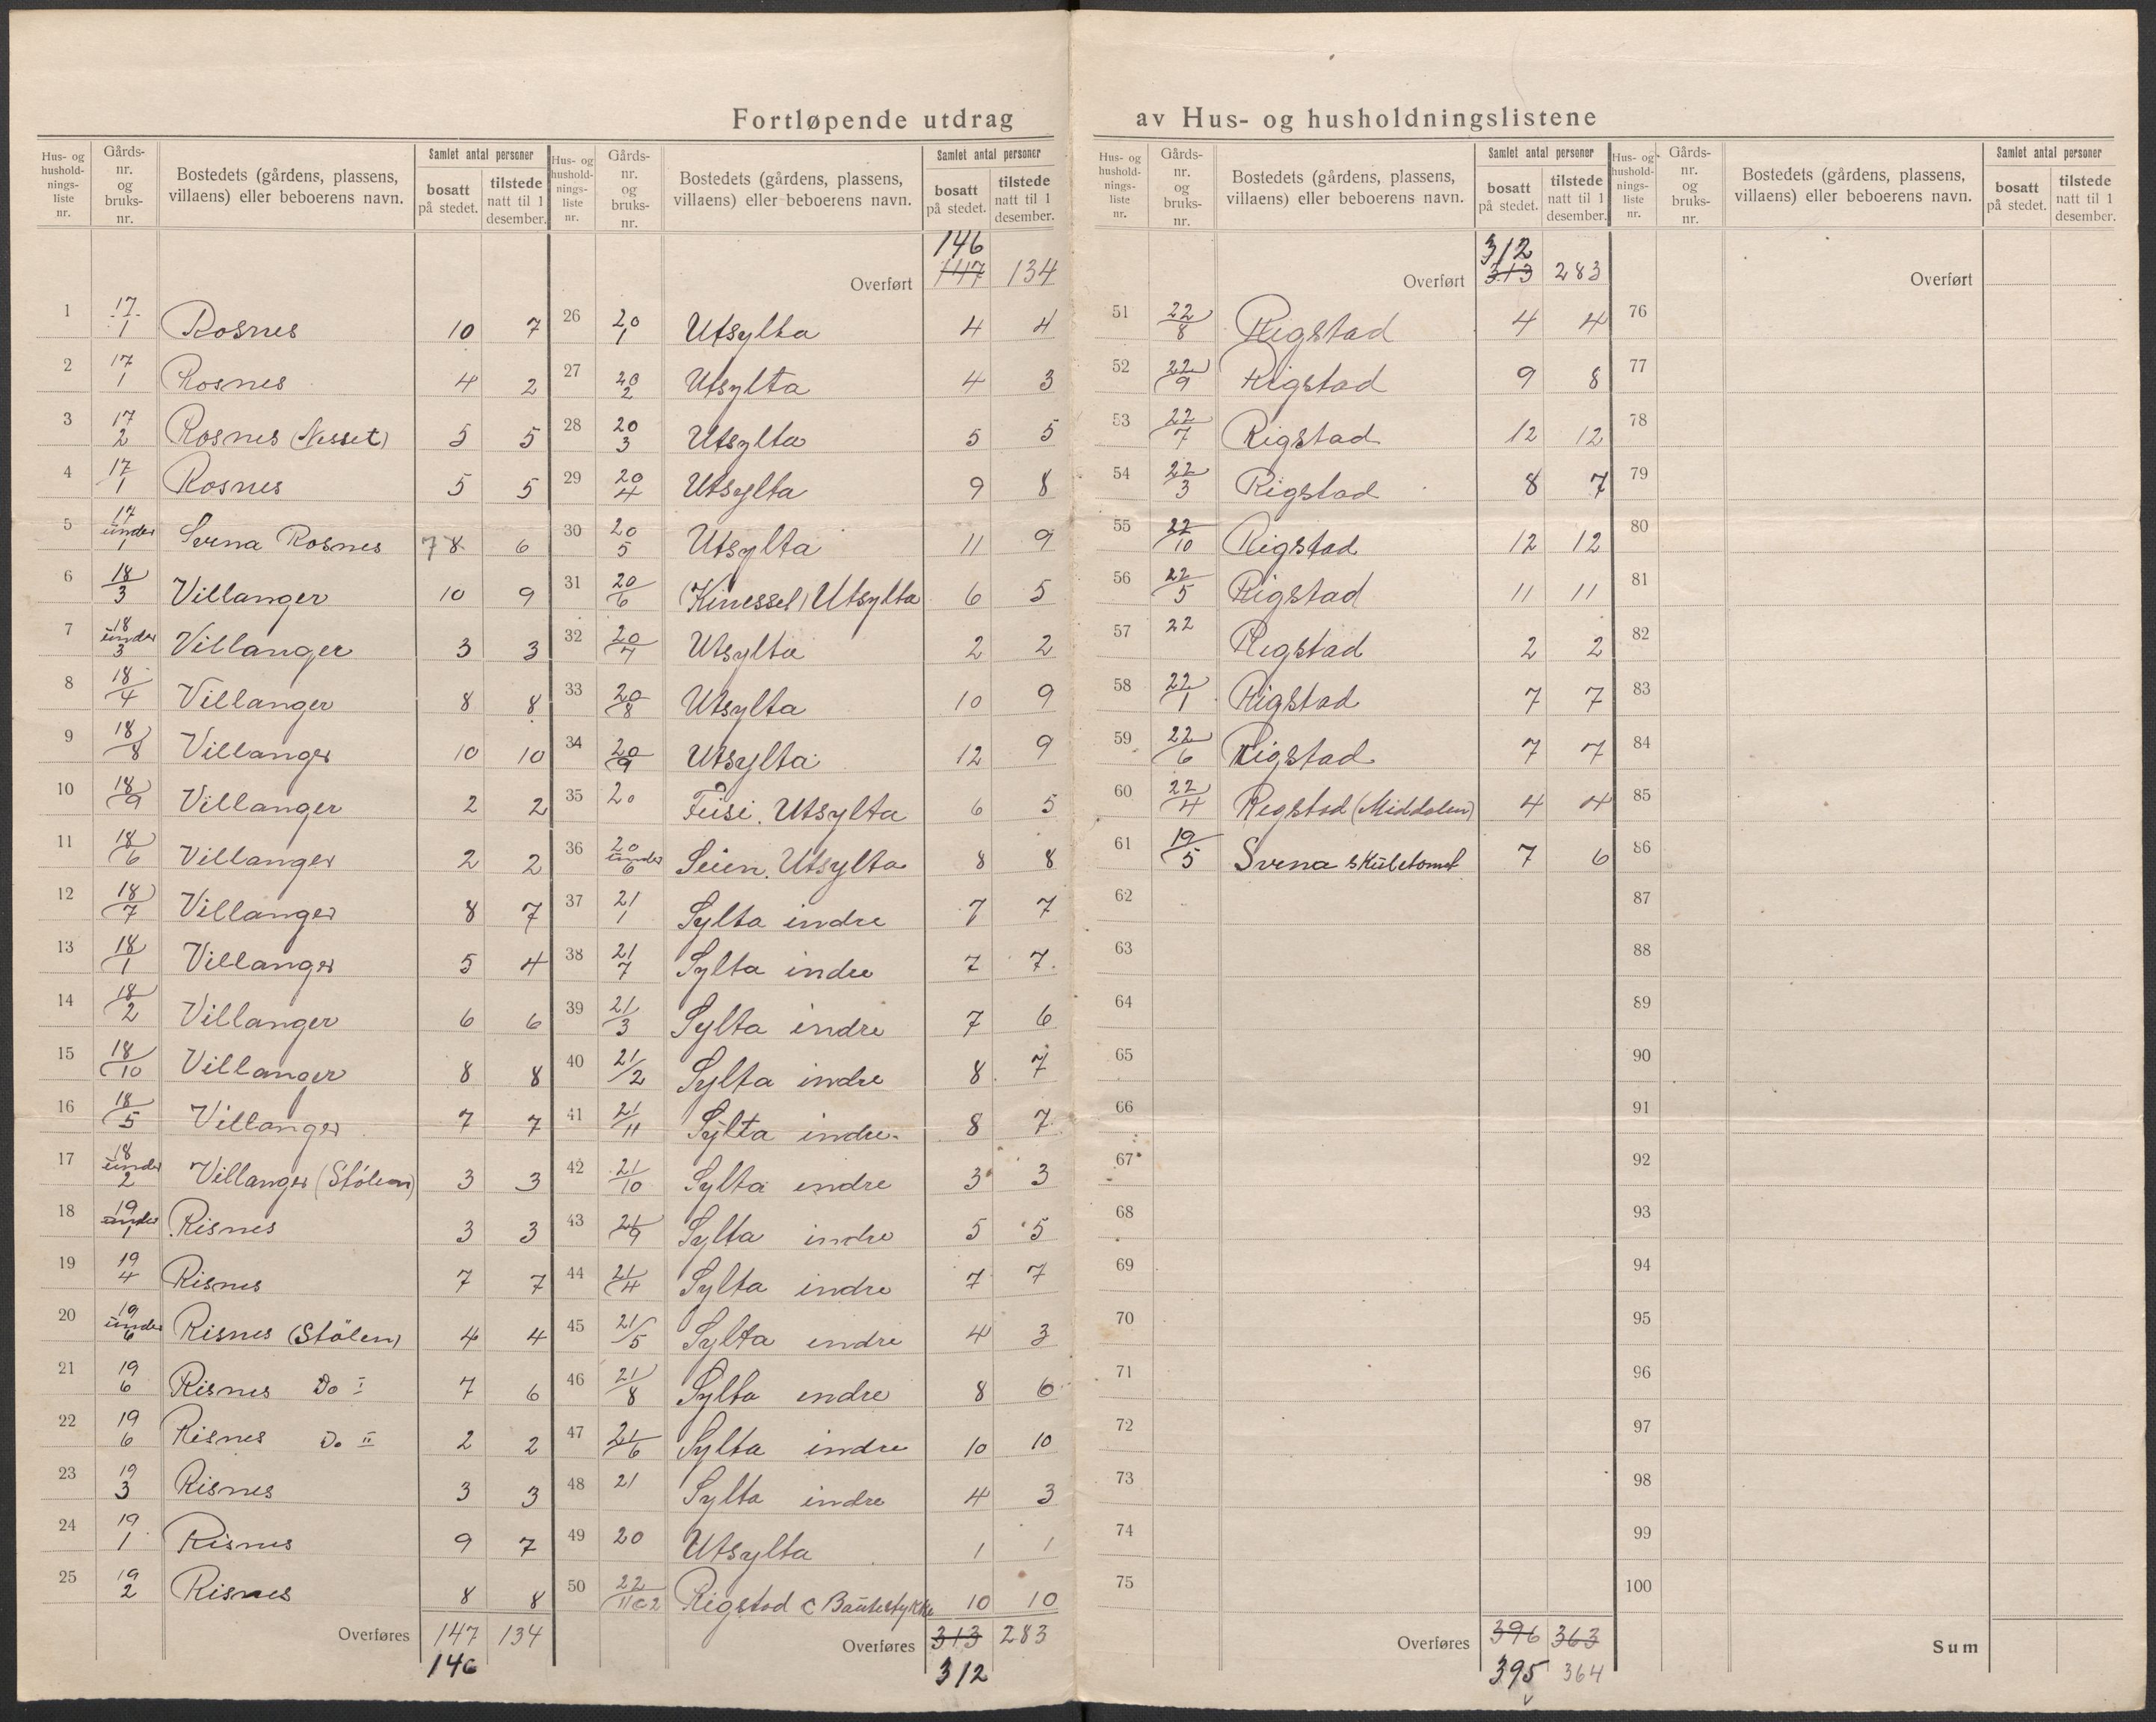 Fortløpende utdrag av Hus- og husholdningslistene
Hus- og hushold-nings-liste nr. | Gårds-nr. og bruks-nr. | Bostedets (gårdens, plassens, villaens) eller beboerens navn. | Samlet antal personer | bosatt på stedet. | tilstede natt til 1 desember.
1 17/1 Rosnes 10 7
2 17/1 Rosnes 4 2
3 17/2 Rosnes (Nesset) 5 5
4 17/1 Rosnes 5 5
5 17 under 1 Svena Rosnes 7 8 6
6 18/3 Villanger 10 9
7 18 under 3 Villanger 3 3
8 18/4 Villanger 8 8
9 18/8 Villanger 10 10
10 18/9 Villanger 2 2
11 18/6 Villanger 2 2
12 18/7 Villanger 8 7
13 18/1 Villanger 5 4
14 18/2 Villanger 6 6
15 18/10 Villanger 8 8
16 18/5 Villanger 7 7
17 18 under 2 Villanger (Stölen) 3 3
18 19 under 1 Risnes 3 3
19 19/4 Risnes 7 7
20 19 under 6 Risnes (Stölen) 4 4
21 19/6 Risnes Do I 7 6
22 19/6 Risnes Do II 2 2
23 19/3 Risnes 3 3
24 19/1 Risnes 9 7
25 19/2 Risnes 8 8
Overføres 147 134
146
Hus- og hushold-nings-liste nr. | Gårds-nr. og bruks-nr. | Bostedets (gårdens, plassens, villaens) eller beboerens navn. | Samlet antal personer | bosatt på stedet. | tilstede natt til 1 desember.
146
Overført 147 134
26 20/1 Utsylta 4 4
27 20/2 Utsylta 4 3
28 20/3 Utsylta 5 5
29 20/4 Utsylta 9 8
30 20/5 Utsylta 11 9
31 20/6 (Kinesset) Utsylta 6 5
32 20/7 Utsylta 2 2
33 20/8 Utsylta 10 9
34 20/9 Utsylta 12 9
35 20 Utsylta 6 5
36 20 under 6 Utsylta 8 8
37 21/1 Sylta indre 7 7
38 21/7 Sylta indre 7 7
39 21/3 Sylta indre 7 6
40 21/2 Sylta indre 8 7
41 21/11 Sylta indre 8 7
42 21/10 Sylta indre 3 3
43 21/9 Sylta indre 5 5
44 21/4 Sylta indre 7 7
45 21/5 Sylta indre 4 3
46 21/8 Sylta indre 8 6
47 21/6 Sylta indre 10 10
48 21 Sylta indre 4 3
49 20 Utsylta 1 1
50 22/11 c 2 Rigstad c Bautestykke 10 10
Overføres 313 283
312
Hus- og hushold-nings-liste nr. | Gårds-nr. og bruks-nr. | Bostedets (gårdens, plassens, villaens) eller beboerens navn. | Samlet antal personer | bosatt på stedet. | tilstede natt til 1 desember.
312
Overført 313 283
51 22/8 Rigstad 4 4
52 22/9 Rigstad 9 8
53 22/7 Rigstad 12 12
54 22/3 Rigstad 8 7
55 22/10 Rigstad 12 12
56 22/5 Rigstad 11 11
57 22 Rigstad 2 2
58 22/1 Rigstad 7 7
59 22/6 Rigstad 7 7
60 22/4 Rigstad (Middalen) 4 4
61 19/5 Svena skuletomt 7 6
62
63
64
65
66
67
68
69
70
71
72
73
74
75
Overføres 396 363
395 364
Hus- og hushold-nings-liste nr. | Gårds-nr. og bruks-nr. | Bostedets (gårdens, plassens, villaens) eller beboerens navn. | Samlet antal personer | bosatt på stedet. | tilstede natt til 1 desember.
Overført
76
77
78
79
80
81
82
83
84
85
86
87
88
89
90
91
92
93
94
95
96
97
98
99
100
Sum